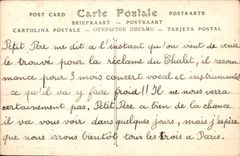 POST CARD Carte Postale POSTKARTE
BRIEFKAART POSTKAART
CARTOLINA POSTALE ОТКРЫТОЕ ПИСЬМО TARJETA POSTAL
Petit Père me dit à l'instant qu'on vient de venir
le trouver pour la réclame du Chalet, il recom
mence pour 3 mois concert vocal et instrumental
ce qu'il va y faire froid!! Il ne nous verra
certainement pas. Petit Père a bien de la chance
il va vous voir dans quelques jours, mais j'espère
que nous irons bientôt tous les trois à Paris.